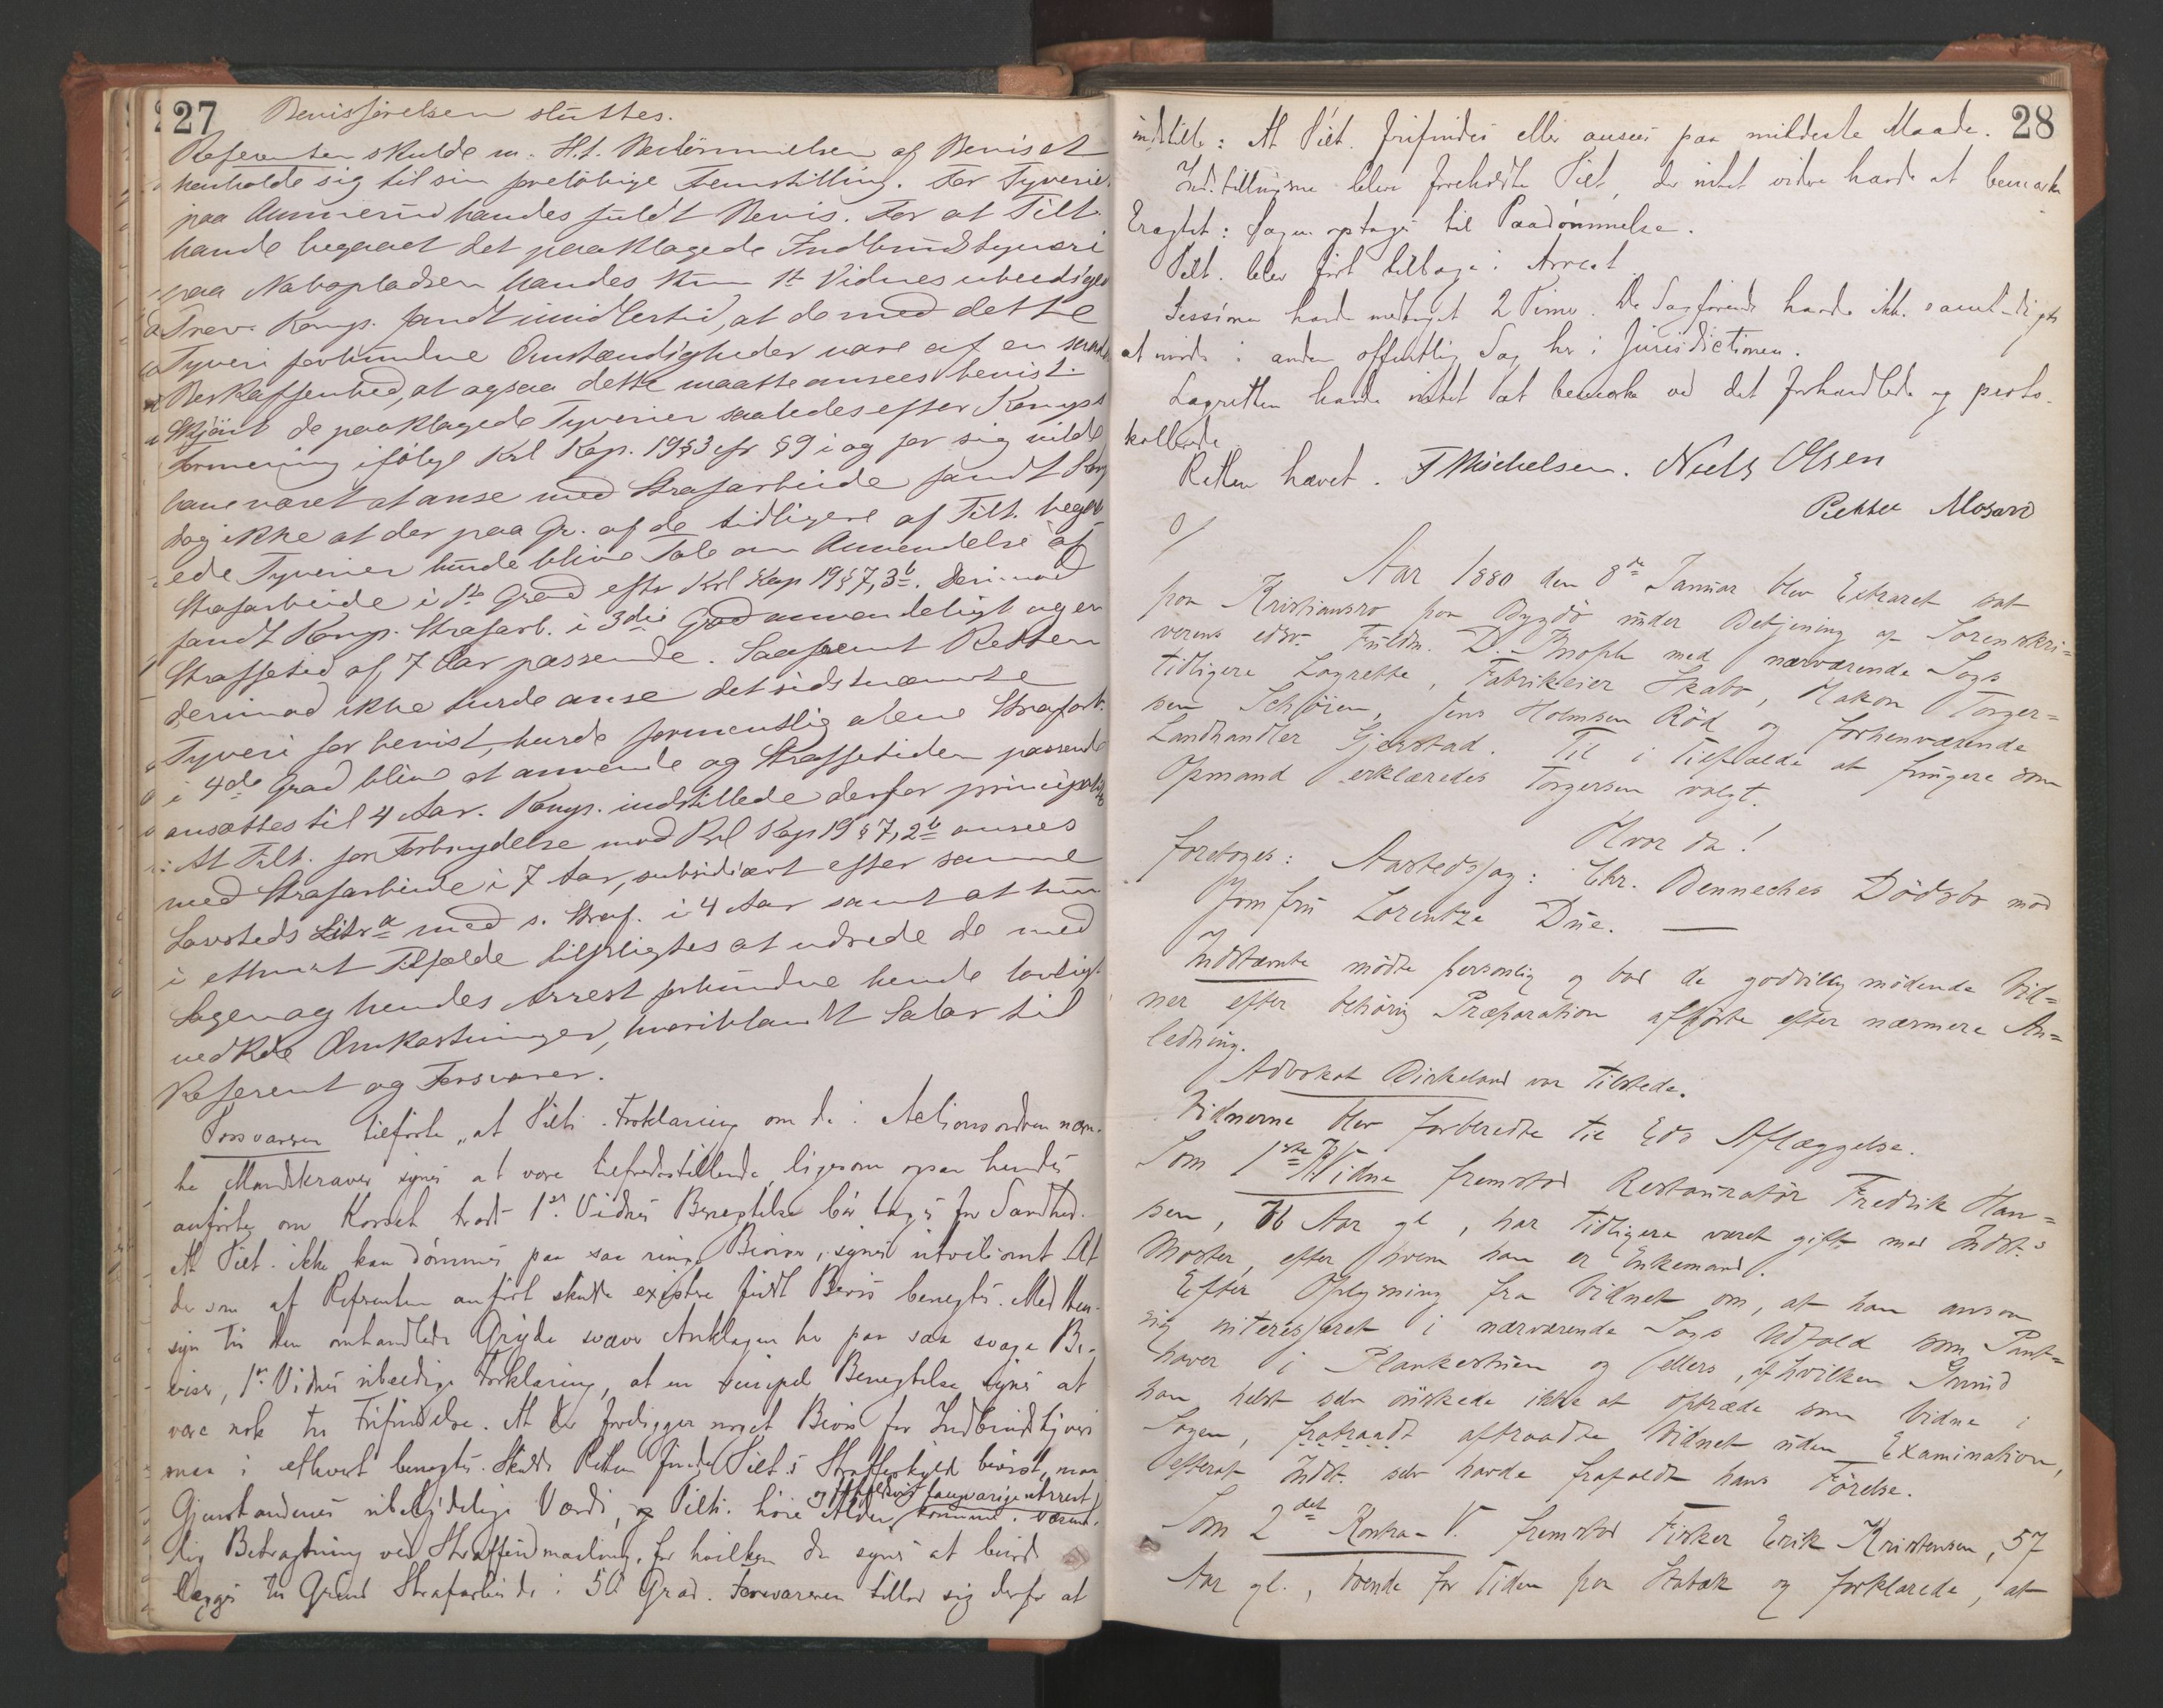 27
Bevisførelsen sluttes.
Referenten skulde m. H. t. Bedømmelsen af Beviset
henholde sig til sin foreløbige Fremstilling. For Tyveriet
paa Ammerud havdes fuldt Bevis. For at Tilt.
havde begaaet det paaklagede Indbrudstyveri
paa Nabopladsen havdes kun 1ste Vidnes ubeedigede
Prov. Komp. fandt imidlertid, at de med dette
Tyveri forbundne Omstændigheder vare af en saadan
Beskaffenhed, at ogsaa dette maatte ansees bevist.
Skjønt de paaklagede Tyverier saaledes efter Komps
Formening ifølge Krl Kap. 19 § 3 cfr § 9 i og for sig vilde
have været at anse med Strafarbeide fandt Komp
dog ikke at der paa Gr. af de tidligere af Tilt. begaa-
ede Tyverier burde blive Tale om Anvendelse af
Strafarbeide i 1ste Grad efter Krl Kap 19 § 7, 3b. Derimod
fandt Komp. Strafarb. i 3die Grad anvendeligt og en
Straffetid af 7 Aar passende. Saafremt Retten
derimod ikke turde anse det sidstnævnte
Tyveri for bevist, burde formentlig alene Strafarb.
i 4de Grad blive at anvende og Straffetiden passende
ansættes til 4 Aar. Komp. indstillede derfor principaliter
: At Tilt. for Forbrydelse mod Krl Kap 19 § 7, 2b ansees
med Strafarbeide i 7 Aar, subsidiært efter samme
Lovsteds Litr a med s. Straf. i 4 Aar samt at hun
i ethvert Tilfælde tilpligtes at udrede de med
Sagen og hendes Arrest forbundne hende lovligt
vedkde Omkostninger, hvoriblandt Salær til
Referent og Forsvarer.
Forsvareren tilførte „at Tilts. Forklaring om de i Actionsordren nævn-
te Mandskraver synes at være tilfredsstillende, ligesom ogsaa hendes
anførte om Korset trods 1ste Vidnes Benegtelse bør tages for Sandhed.
At Tilt. ikke kan dømmes paa saa ringe Beviser, synes utvivlsomt. At
der som af Referenten anført skulde existere fuldt Bevis benegtes. Med Hen-
syn til den omhandlede Gryde svæver Anklagen her paa saa svage Be-
viser, 1ste Vidnes ubeedigede Forklaring, at en simpel Benegtelse synes at
være nok til Frifindelse. At der foreligger noget Bevis for Indbrudstyveri
maa i ethvert benegtes. Skulde Retten finde Tilt.s Straffeskyld bevist, maa
og forholdsvis langvarige Arrest
Gjenstandenes ubetydelige Værdi, og Tilts. høie Alder, komme i væsent-
lig Betragtning ved Straffudmaaling, for hvilken der synes at burde
lægges til Grund Strafarbeide i 5te Grad. Forsvareren tillod sig derfor at
28
indstille: At Tilt. frifindes eller ansees paa mildeste Maade.
Indstillingerne bleve foreholdte Tilt, der intet videre havde at bemærke
Eragtet: Sagen optages til Paadømmelse.
Tilt. blev ført tilbage i Arrest
Sessionen havde medtaget 2 Timer. De Sagførende havde ikke samtidigt
at møde i anden offentlig Sag her i Jurisdictionen.
Lagretten havde intet at bemærke ved det forhandlede og proto-
kollerede
Retten hævet. F Michelsen. Niels Olsen
Petter Moserø
0/
Aar 1880 den 8de Januar blev Extraret sat
paa Kristiansro paa Bygdø under Betjening af Sorenskri-
verens edsv. Fuldm. D. Knoph med nærværende Sags
tidligere Lagrette, Fabrikeier Skabo, Hakon Torger=
sen Schøien, Jens Holmsen Röd og forhenværende
Landhandler Gjerstad. Til i Tilfælde at fungere som
Opmand erklæredes Torgersen valgt.
Hvor da!
foretoges: Aastedssag: Chr. Benneches Dödsbo mod
Jomfru Lorentze Due. —
Indstævnte mödte personlig og bad de godvillig mödende Vid=
ner efter behørig Præparation afhörte efter nærmere An=
ledning.
Advokat Birkeland var tilstede.
Vidnerne blev forberedte til Eds Aflæggelse.
Som 1ste K.Vidne fremstod Restauratör Fredrik Han=
sen, 76 Aar gl, har tidligere været gift med Indst.s
Moster, efter hvem han er Enkemand.
Efter Oplysning fra Vidnet om, at han ansaa
sig interesseret i nærværende Sags Udfald som Pant=
haver i Plankestuen og ellers, af hvilken Grund
han helst selv önskede ikke at optræde som Vidne i
Sagen, fratraadt aftraadte Vidnet uden Examination,
efterat Indst. selv havde frafaldt hans Förelse.
Som 2det Kontra-V. fremstod Fisker Erik Kristensen, 57
Aar gl., boende for Tiden paa Stabæk og forklarede, at